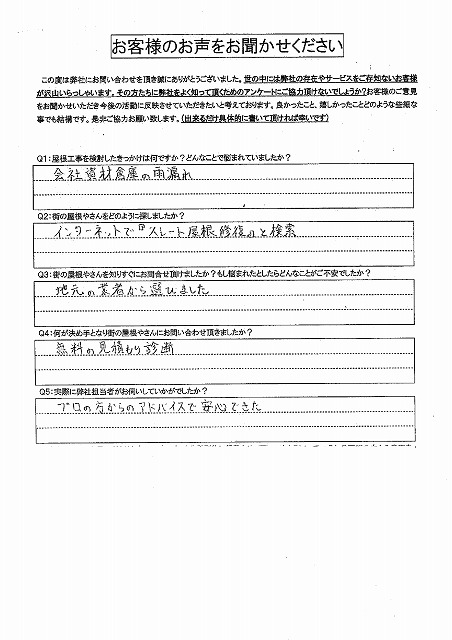 お客様のお声をお聞かせください
この度は弊社にお問い合わせを頂き誠にありがとうございました。世の中には弊社の存在やサービスをご存知ないお客様
が沢山いらっしゃいます。その方たちに弊社をよく知って頂くためのアンケートにご協力頂けないでしょうか?お客様のご意見
をお聞かせいただき今後の活動に反映させていただきたいと考えております。良かったこと、嬉しかったことどのような些細な
事でも結構です。是非ご協力お願い致します。(出来るだけ具体的に書いて頂ければ幸いです)
Q1:屋根工事を検討したきっかけは何ですか?どんなことで悩まれていましたか?
会社資材倉庫の雨漏れ
Q2:街の屋根やさんをどのように探しましたか?
インターネットで『スレート屋根修復』と検索
Q3:街の屋根やさんを知りすぐにお問合せ頂けましたか?もし悩まれたとしたらどんなことがご不安でしたか?
地元の業者から選びました
Q4:何が決め手となり街の屋根やさんにお問い合わせ頂きましたか?
無料の見積もり診断
Q5:実際に弊社担当者がお伺いしていかがでしたか?
プロの方からのアドバイスで安心できた